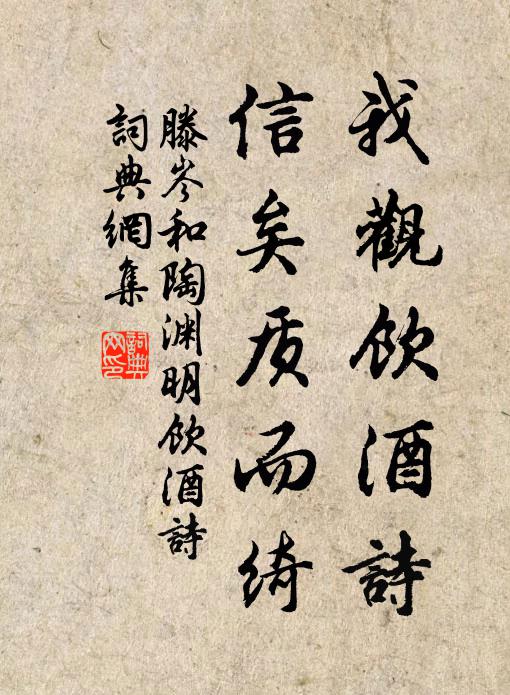 我觀飲酒詩
信矣质而綺
滕岑和陶渊明飲酒詩
詞典網集
詞典網印